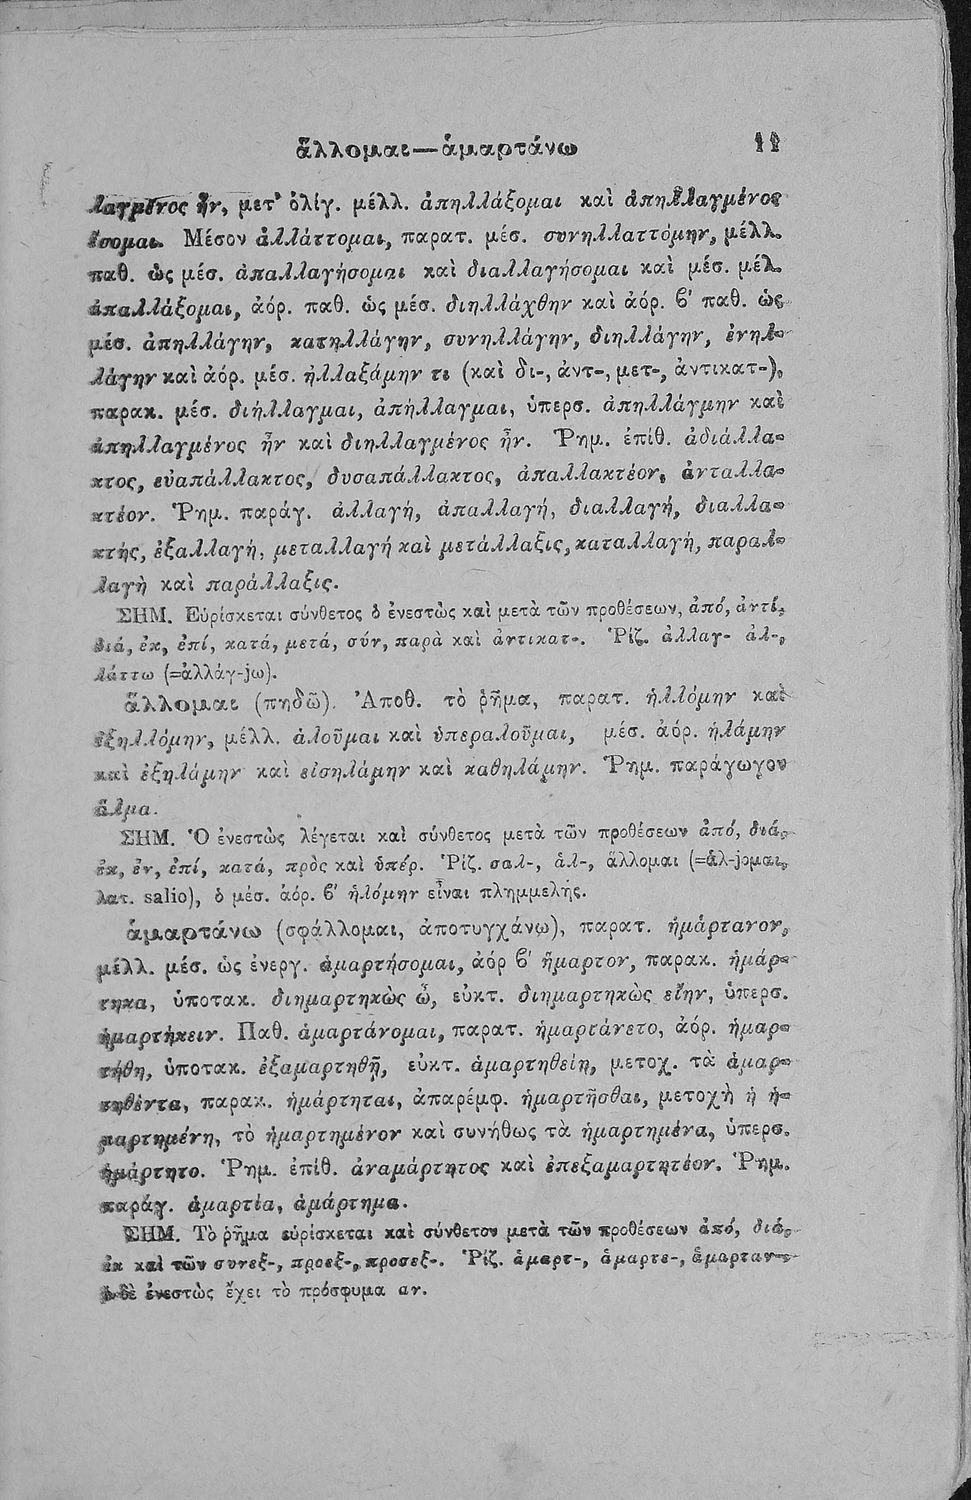 ἅλλομαι—ἁμαρτάνω 11
λαγμένος ἦν, μετ' ὀλίγ. μέλλ. ἀπηλλάξομαι καὶ ἀπηλλαγμένος
ἔσομαι. Μέσον ἀλλάττομαι, παρατ. μέσ. συνηλλαττόμην, μέλλ.
παθ. ὡς μέσ. ἀπαλλαγήσομαι καὶ διαλλαγήσομαι καὶ μέσ. μέλ.
ἀπαλλάξομαι, ἀόρ. παθ. ὡς μέσ. διηλλάχθην καὶ ἀόρ. ϐ' παθ. ὡς
μέσ. ἀπηλλάγην, κατηλλάγην, συνηλλάγην, διηλλάγην, ἐνηλ-
λάγην καὶ ἀόρ. μέσ. ἠλλαξάμην τι (καὶ δι-, ἀντ-, μετ-, ἀντικατ-),
παρακ. μέσ. διήλλαγμαι, ἀπήλλαγμαι, ὑπερσ. ἀπηλλάγμην καὶ
ἀπηλλαγμένος ἦν καὶ διηλλαγμένος ἦν. Ῥημ. ἐπίθ. ἀδιάλλα-
κτος, εὐαπάλλακτος, δυσαπάλλακτος, ἀπαλλακτέον, ἀνταλλα-
κτέον. Ῥημ. παράγ. ἀλλαγή, ἀπαλλαγή, διαλλαγή, διαλλα-
κτής, ἐξαλλαγή, μεταλλαγή καὶ μετάλλαξις, καταλλαγή, παραλ-
λαγὴ καὶ παράλλαξις.
ΣΗΜ. Εὑρίσκεται σύνθετος ὁ ἐνεστὼς καὶ μετὰ τῶν προθέσεων, ἀπό, ἀντί,
διά, ἐκ, ἐπί, κατά, μετά, σύν, παρὰ καὶ ἀντικατ-. Ῥίζ. ἀλλαγ- ἀλ-,
λάττω (=ἀλλάγ-jω).
ἅλλομαι (πηδῶ). Ἀποθ. τὸ ῥῆμα, παρατ. ἡλλόμην καὶ
ἐξηλλόμην, μέλλ. ἁλοῦμαι καὶ ὑπεραλοῦμαι, μέσ. ἀόρ. ἡλάμην
καὶ ἐξηλάμην καὶ εἰσηλάμην καὶ καθηλάμην. Ῥημ. παράγωγον
ἅλμα.
ΣΗΜ. Ὁ ἐνεστὼς λέγεται καὶ σύνθετος μετὰ τῶν προθέσεων ἀπό, διά,
ἐκ, ἐν, ἐπί, κατά, πρὸς καὶ ὑπέρ. Ῥίζ. σαλ-, ἁλ-, ἅλλομαι (=ἁλ-jομαι,
λατ. salio), ὁ μέσ. ἀόρ. ϐ' ἡλόμην εἶναι πλημμελής.
ἁμαρτάνω (σφάλλομαι, ἀποτυγχάνω), παρατ. ἡμάρτανον,
μέλλ. μέσ. ὡς ἐνεργ. ἁμαρτήσομαι, ἀόρ ϐ' ἥμαρτον, παρακ. ἡμάρ-
τηκα, ὑποτακ. διημαρτηκὼς ὦ, εὐκτ. διημαρτηκὼς εἴην, ὑπερσ.
ἡμαρτήκειν. Παθ. ἁμαρτάνομαι, παρατ. ἡμαρτάνετο, ἀόρ. ἡμαρ-
τήθη, ὑποτακ. ἐξαμαρτηθῇ, εὐκτ. ἁμαρτηθείη, μετοχ. τὰ ἁμαρ-
τηθέντα, παρακ. ἡμάρτηται, ἀπαρέμφ. ἡμαρτῆσθαι, μετοχὴ ἡ ἡ-
μαρτημένη, τὸ ἡμαρτημένον καὶ συνήθως τὰ ἡμαρτημένα, ὑπερσ.
ἡμάρτητο. Ῥημ. ἐπίθ. ἀναμάρτητος καὶ ἐπεξαμαρτητέον. Ῥημ.
παράγ. ἁμαρτία, ἁμάρτημα.
ΣΗΜ. Τὸ ῥῆμα εὑρίσκεται καὶ σύνθετον μετὰ τῶν προθέσεων ἀπό, διά,
ἐκ καὶ τῶν συνεξ-, προεξ-, προσεξ-. Ῥίζ. ἁμαρτ-, ἁμαρτε-, ἁμαρταν-
ὁ δὲ ἐνεστὼς ἔχει τὸ πρόσφυμα αν.